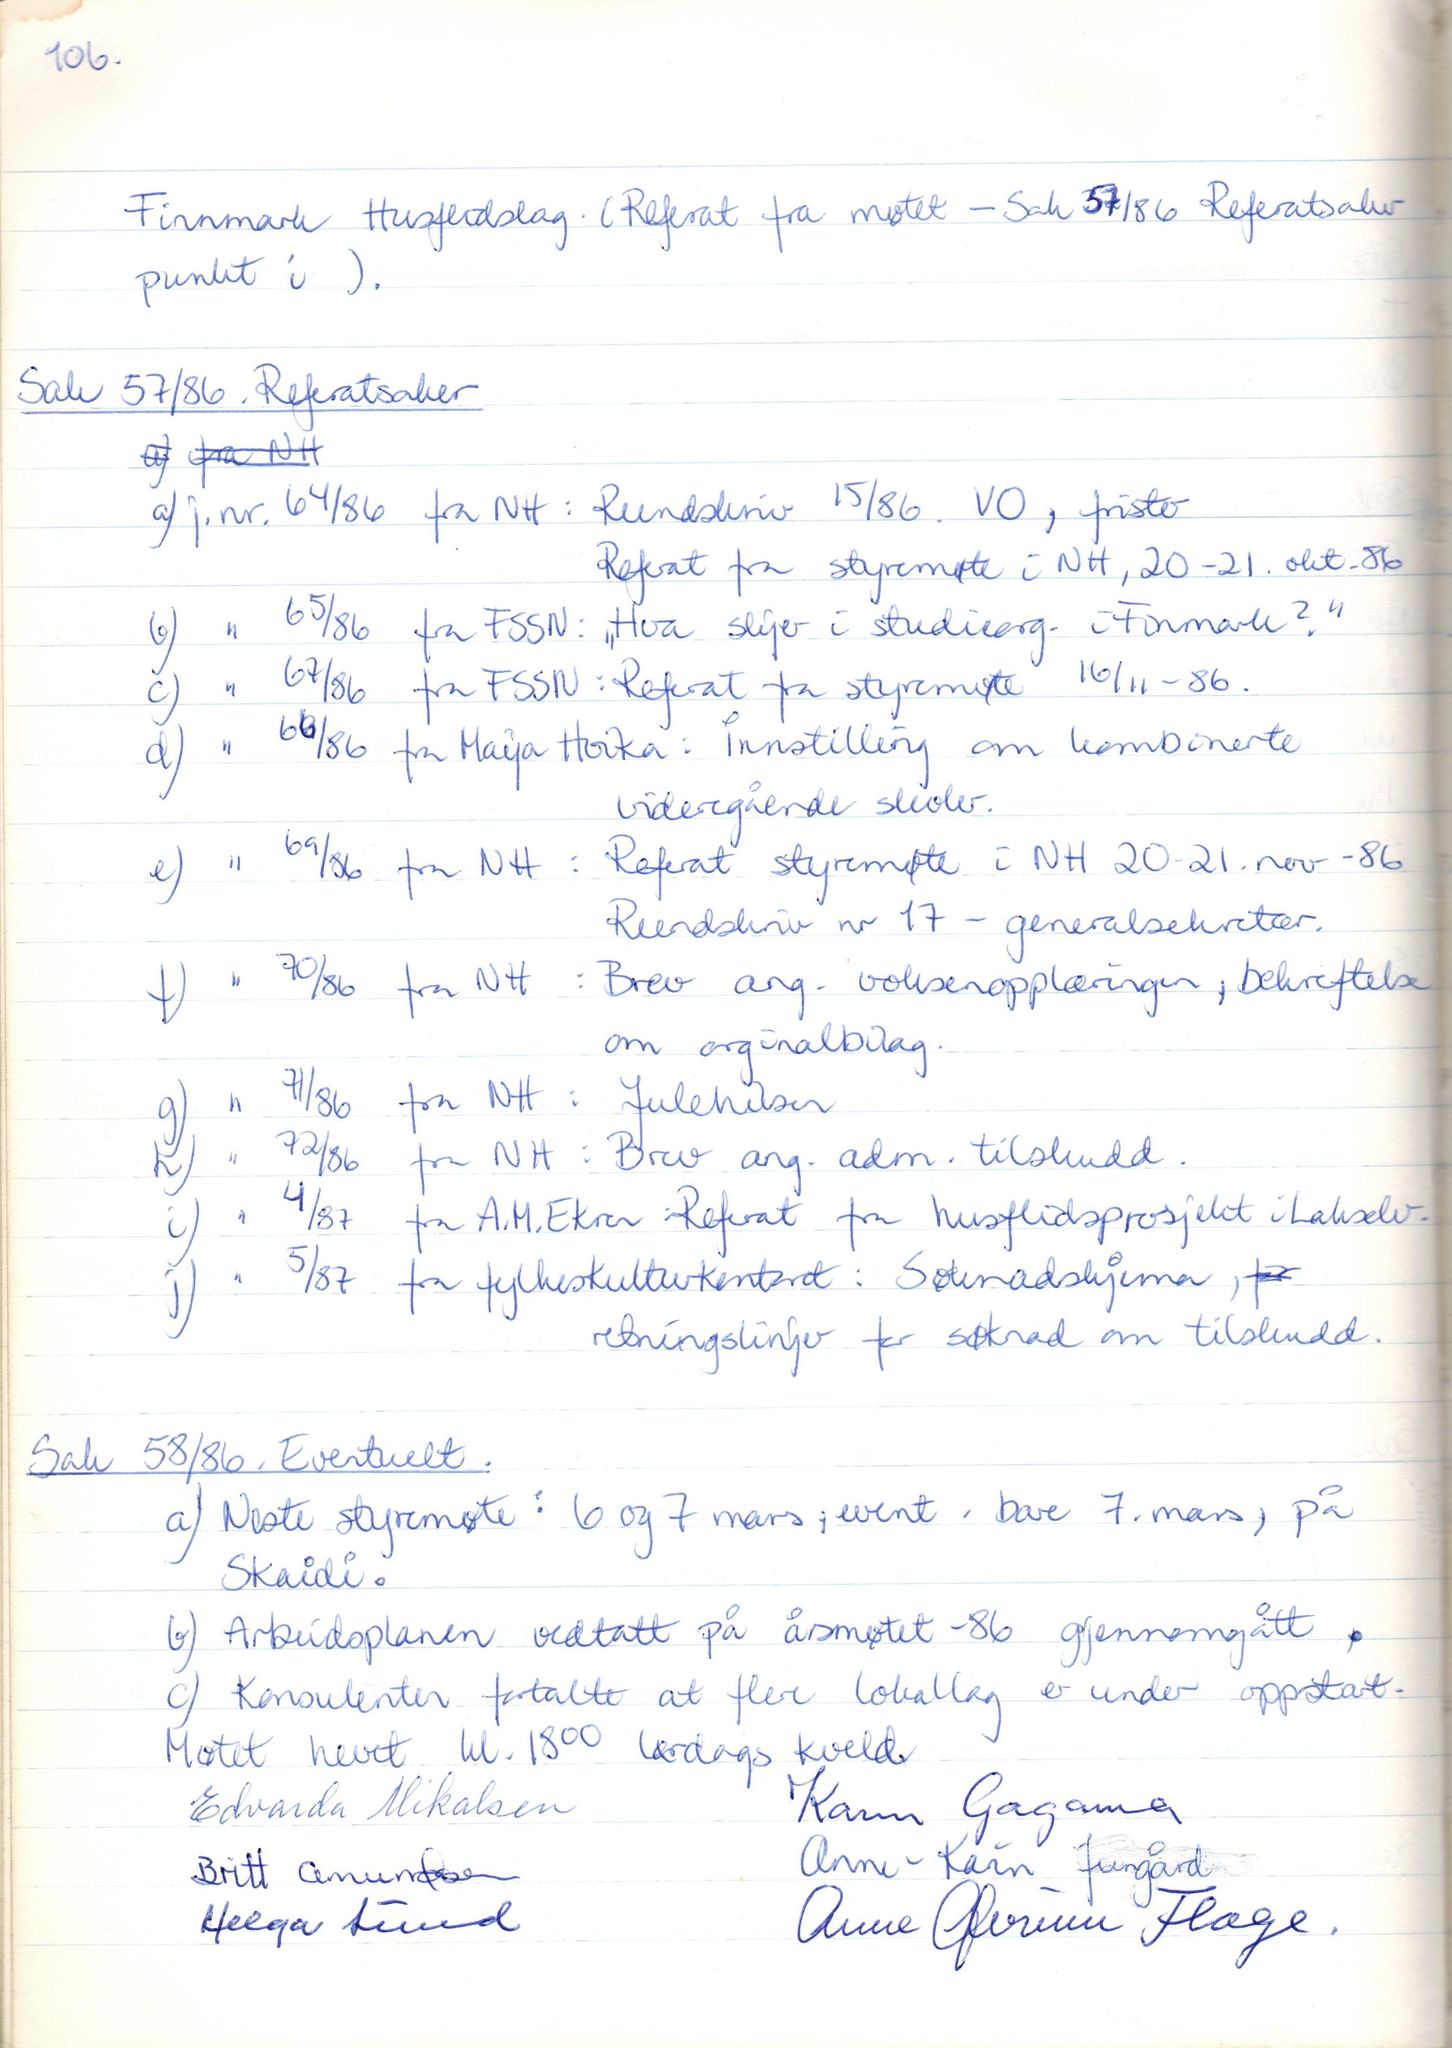 106.
Finnmark Husflidslag. (Referat fra møtet – Sak 57/86 Referatsaker
punkt i ).
Sak 57/86. Referatsaker
a) fra NH
a) j.nr. 64/86 fra NH : Rundskriv 15/86. VO, frister
Referat fra styremøte i NH, 20-21. okt-86
b) " 65/86 fra FSSN: „Hva skjer i studieorg. i Finmark?"
c) " 67/86 fra FSSN: Referat fra styremøte 16/11-86.
d) " 66/86 fra Maija Hoika: Innstilling om kombinerte
videregående skoler.
e) " 69/86 fra NH : Referat styremøte i NH 20-21. nov -86
Rundskriv nr 17 – generalsekretær.
f) " 70/86 fra NH : Brev ang. voksenopplæringen, bekreftelse
om orginalbilag.
g) " 71/86 fra NH : Julehilsen
h) " 72/86 fra NH : Brev ang. adm. tilskudd.
i) " 4/87 fra A.M. Ekren : Referat fra husflidsprosjekt i Lakselv.
j) " 5/87 fra fylkeskulturkontoret: Søknadskjema, for
retningslinjer for søknad om tilskudd.
Sak 58/86. Eventuelt.
a) Neste styremøte : 6 og 7 mars, event. bare 7. mars, på
Skaidi.
b) Arbeidsplanen vedtatt på årsmøtet -86 gjennomgått.
c) Konsulenten fortalte at flere lokallag er under oppstart.
Møtet hevet kl. 1800 lørdags kveld.
Edvarda Mikalsen Karin Gagama
Britt Amundsen Anne-Karin Jungård
Helga Lund Anne Flage.